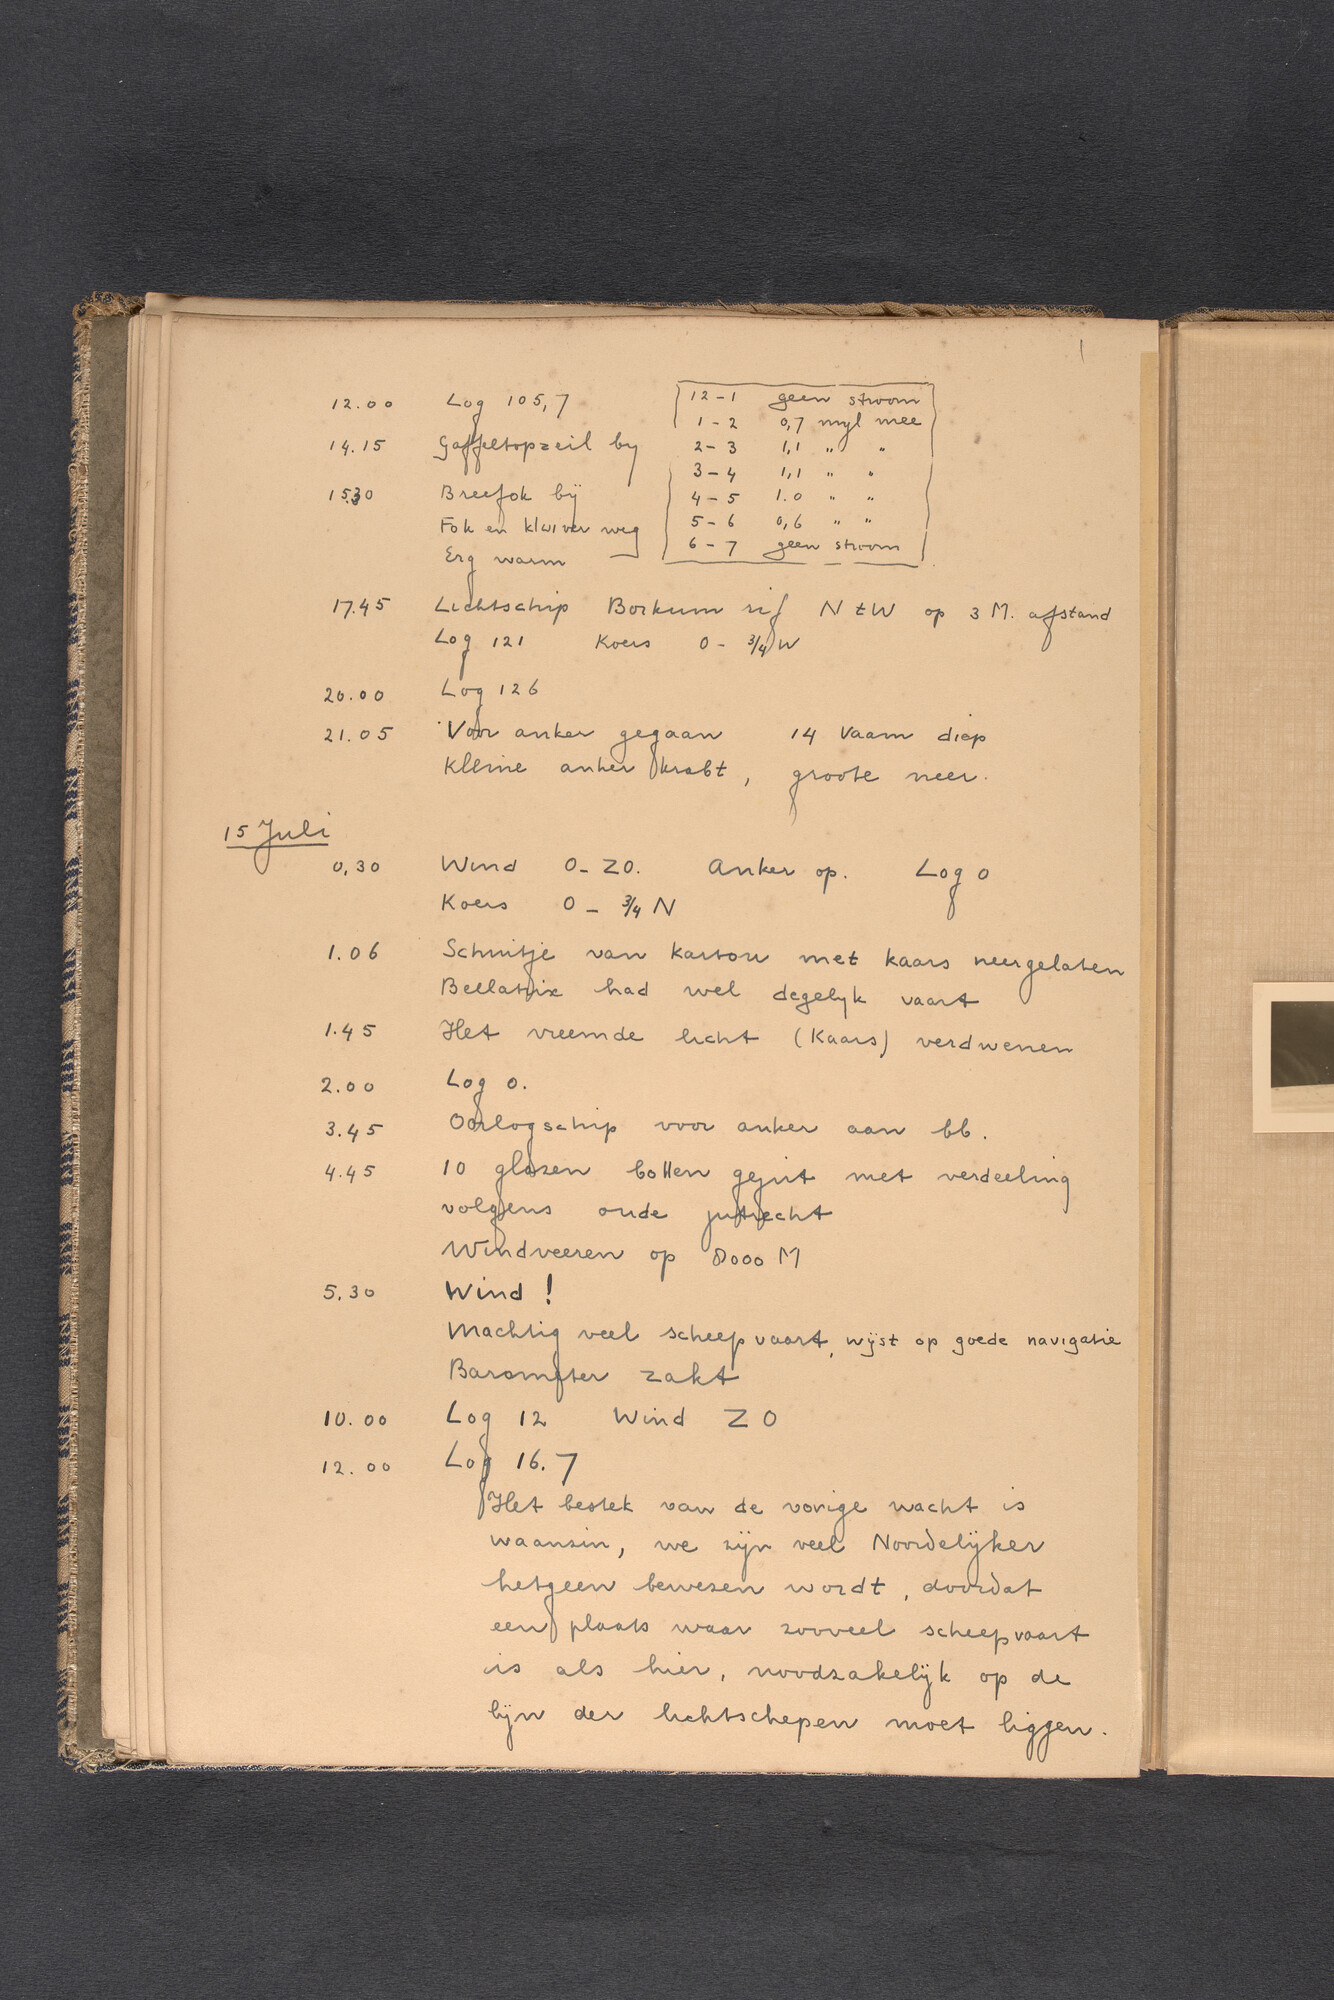 12.00 Log 105,7
14.15 Gaffeltopzeil by
15.30 Breefok bij
Fok en kluiver weg
Erg warm
12-1 geen stroom
1-2 0,7 myl mee
2-3 1,1 " "
3-4 1,1 " "
4-5 1.0 " "
5-6 0,6 " "
6-7 geen stroom
17.45 Lichtschip Borkum rif N t W op 3 M. afstand
Log 121 Koers O - ¾ W
20.00 Log 126
21.05 Voor anker gegaan 14 Vaam diep
Kleine anker krabt, groote neer.
15 Juli
0,30 Wind O - ZO. Anker op. Log 0
Koers O - ¾ N
1.06 Schuitje van karton met kaars neergelaten
Bellatrix had wel degelyk vaart
1.45 Het vreemde licht (Kaars) verdwenen
2.00 Log 0.
3.45 Oorlogschip voor anker aan bb.
4.45 10 glazen bollen gejut met verdeeling
volgens oude jutrecht
Windveeren op 8000 M
5,30 Wind !
Machtig veel scheepvaart, wijst op goede navigatie
Barometer zakt
10.00 Log 12 Wind Z O
12.00 Log 16.7
Het bestek van de vorige wacht is
waanzin, we zijn veel Noordelijker
hetgeen bewezen wordt, doordat
een plaats waar zooveel scheepvaart
is als hier, noodzakelijk op de
lijn der lichtschepen moet liggen.